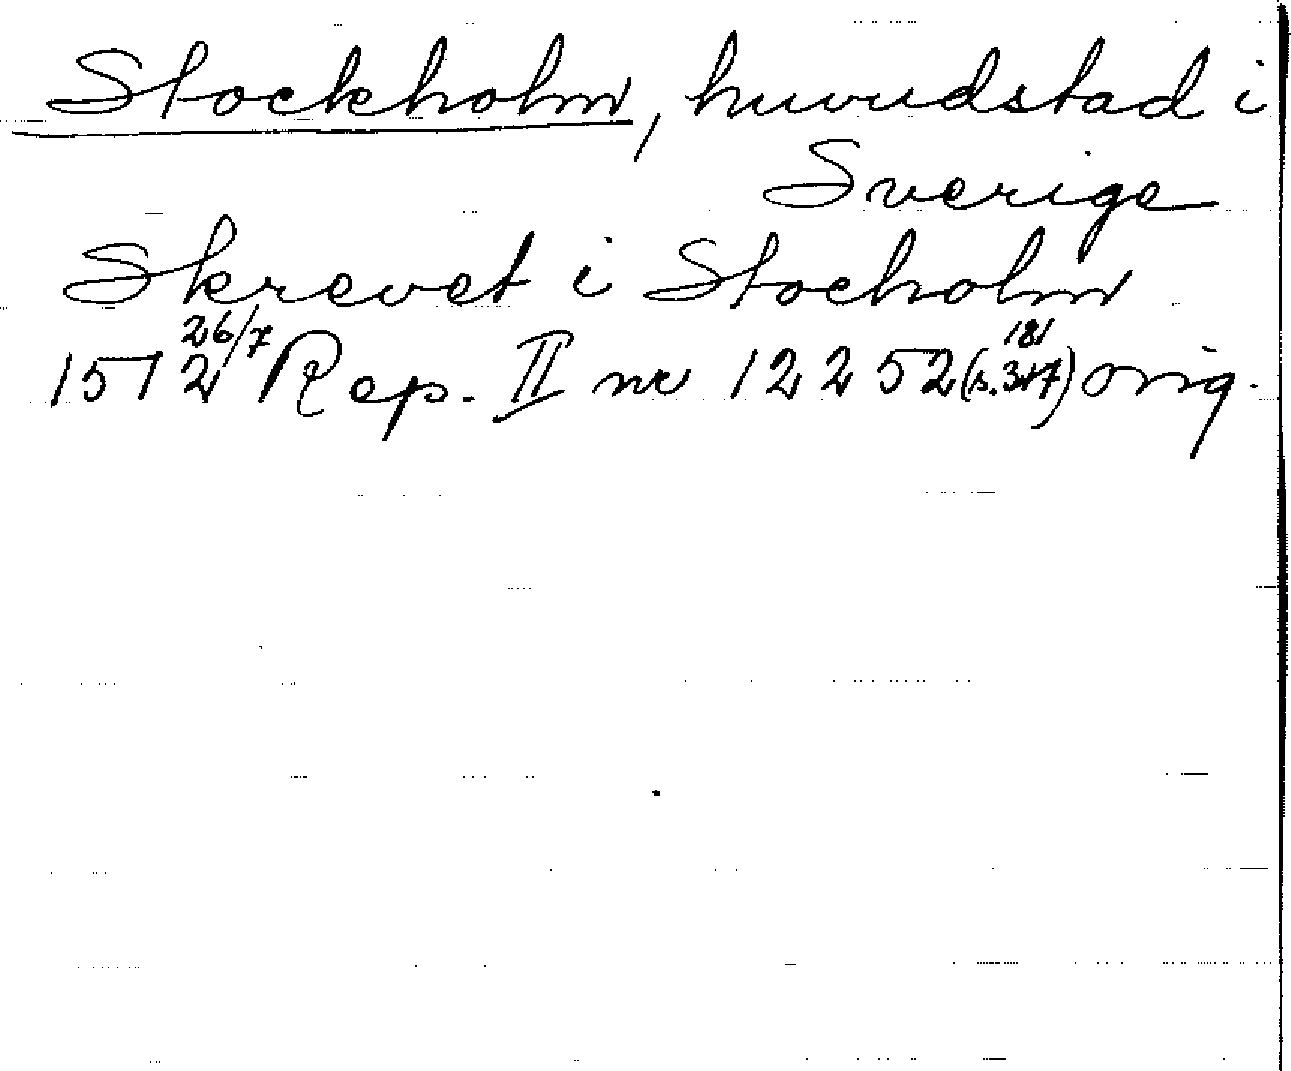 Stockholm, huvudstad i
Sverige
Skrevet i Stocholm
1512 26/7 Rep. II nr 12252 (s. 181) orig.